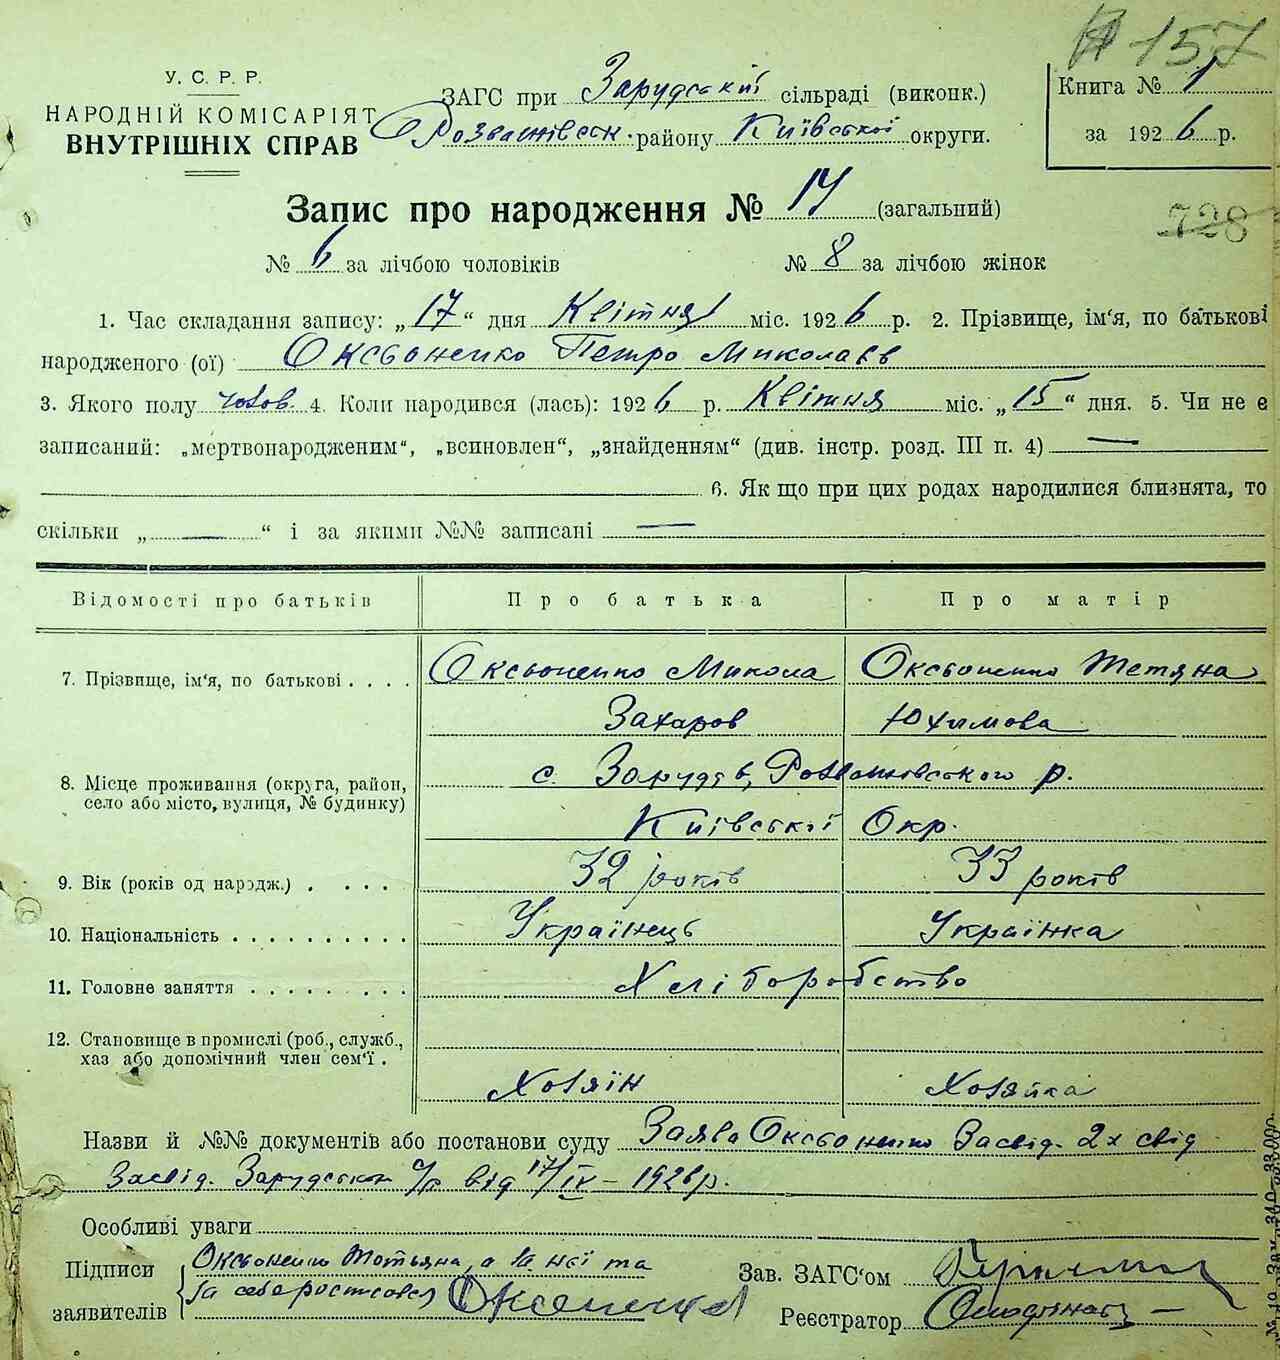 157
У. С. Р. Р.
НАРОДНІЙ КОМІСАРІЯТ
ВНУТРІШНІХ СПРАВ
ЗАГС при Зарудській сільраді (виконк.)
Розважівськ. району Київської округи.
Книга № 1
за 1926 р.
Запис про народження № 14 (загальний)
728
№ 6 за лічбою чоловіків № 8 за лічбою жінок
1. Час складання запису: „17“ дня Квітня міс. 1926 р. 2. Прізвище, ім'я, по батькові
народженого (ої) Оксьоненко Петро Миколаєв
3. Якого полу чолов. 4. Коли народився (лась): 1926 р. Квітня міс. „15“ дня. 5. Чи не є
записаний: „мертвонародженим“, „всиновлен“, „знайденням“ (див. інстр. розд. III п. 4) —
6. Як що при цих родах народилися близнята, то
скільки „—“ і за якими №№ записані —
Відомості про батьків Про батька Про матір
7. Прізвище, ім'я, по батькові . . . . Оксьоненко Микола Оксьоненко Тетяна
Захаров Юхимова
8. Місце проживання (округа, район, село або місто, вулиця, № будинку) с. Заруддє, Розважівського р.
Київської Окр.
9. Вік (років од народж.) . . . . 32 років 33 років
10. Національність . . . . . . . . . . Українець Українка
11. Головне заняття . . . . . . . . . Хліборобство
12. Становище в промислі (роб., служб.,
хаз або допомічний член сем'ї .
Хозяїн Хозяйка
Назви й №№ документів або постанови суду Заява Оксьоненко Засвід. 2х свід
Засвід. Зарудської с/р від 17/IV – 1926 р.
Особливі уваги
Підписи заявителів Оксьоненко Тотьяна, а за неї та
за себе росписався
Зав. ЗАГС'ом
Реєстратор